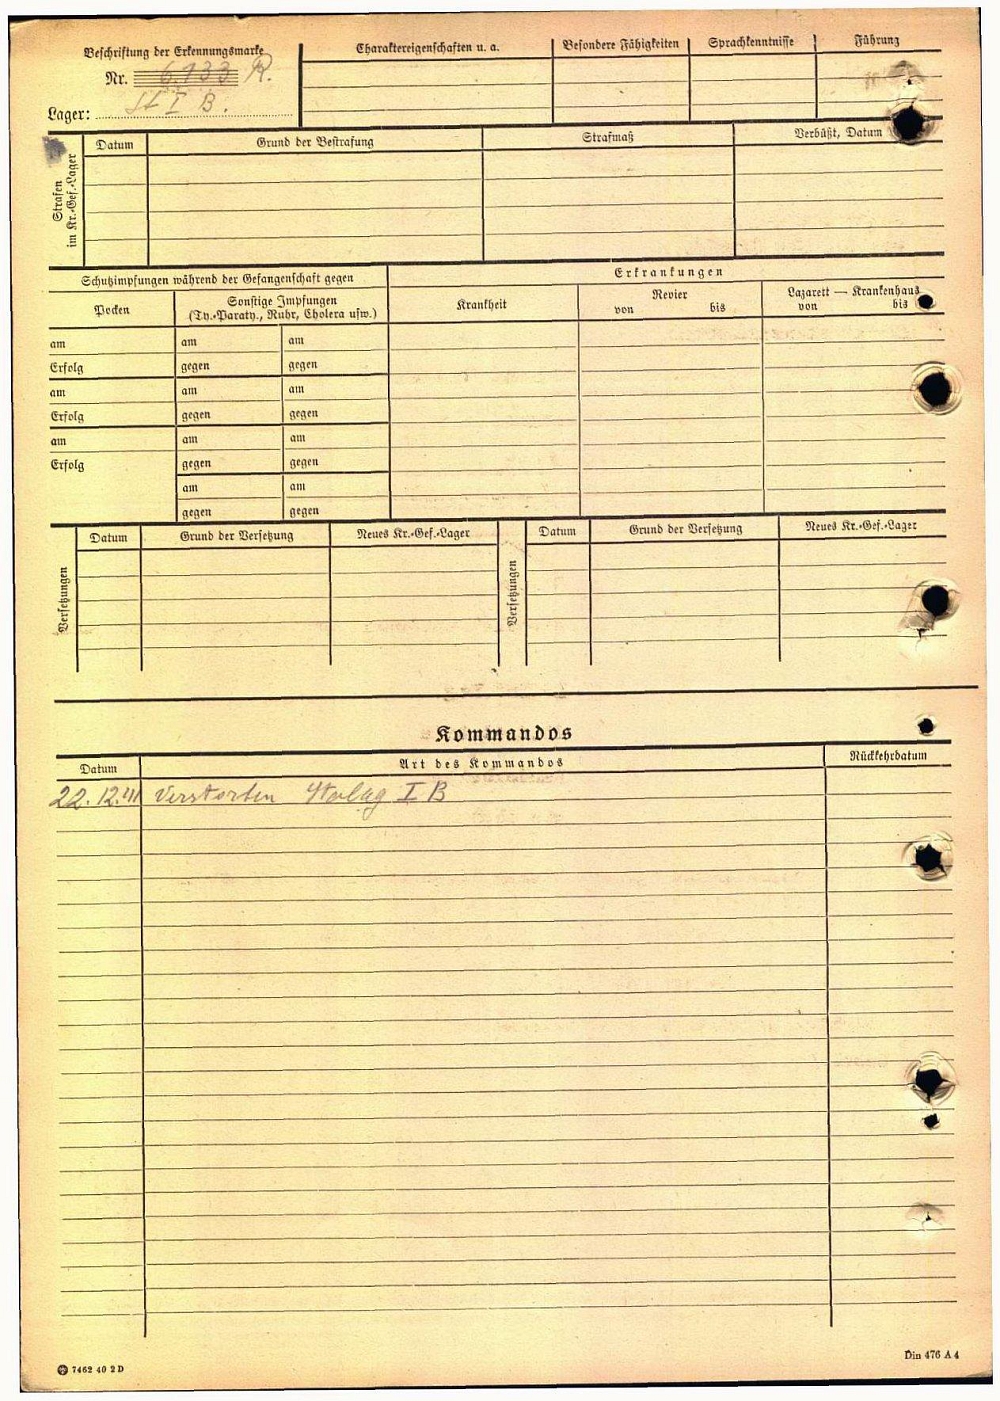 Beschriftung der Erkennungsmarke
Nr. 6133 R.
Lager: St I B.
Charaktereigenschaften u. a.
Besondere Fähigkeiten
Sprachkenntnisse
Führung
Strafen im Kr.-Gef.-Lager
Datum
Grund der Bestrafung
Strafmaß
Verbüßt, Datum
Schutzimpfungen während der Gefangenschaft gegen
Erkrankungen
Pocken
Sonstige Impfungen
(Ty.-Paraty., Ruhr, Cholera usw.)
Krankheit
Revier
von bis
Lazarett — Krankenhaus
von bis
am am am
Erfolg gegen gegen
am am am
Erfolg gegen gegen
am am am
Erfolg gegen gegen
am am
gegen gegen
Versetzungen
Datum
Grund der Versetzung
Neues Kr.-Gef.-Lager
Versetzungen
Datum
Grund der Versetzung
Neues Kr.-Gef.-Lager
Kommandos
Datum
Art des Kommandos
Rückkehrdatum
22.12.41 Verstorben Stalag I B
7462 40 2 D
Din 476 A 4